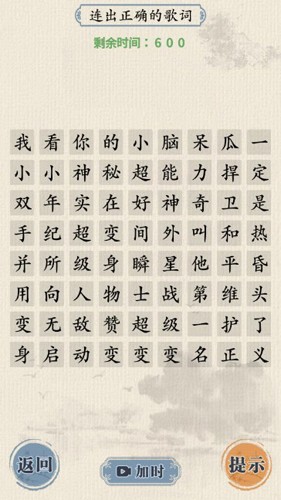 连出正确的歌词
剩余时间：600
我看你的小脑呆瓜一
小小神秘超能力捍定
双年实在好神奇卫是
手纪超变间外叫和热
并所级身瞬星他平昏
用向人物士战第维头
变无敌赞超级一护了
身启动变变变名正义
返回
加时
提示